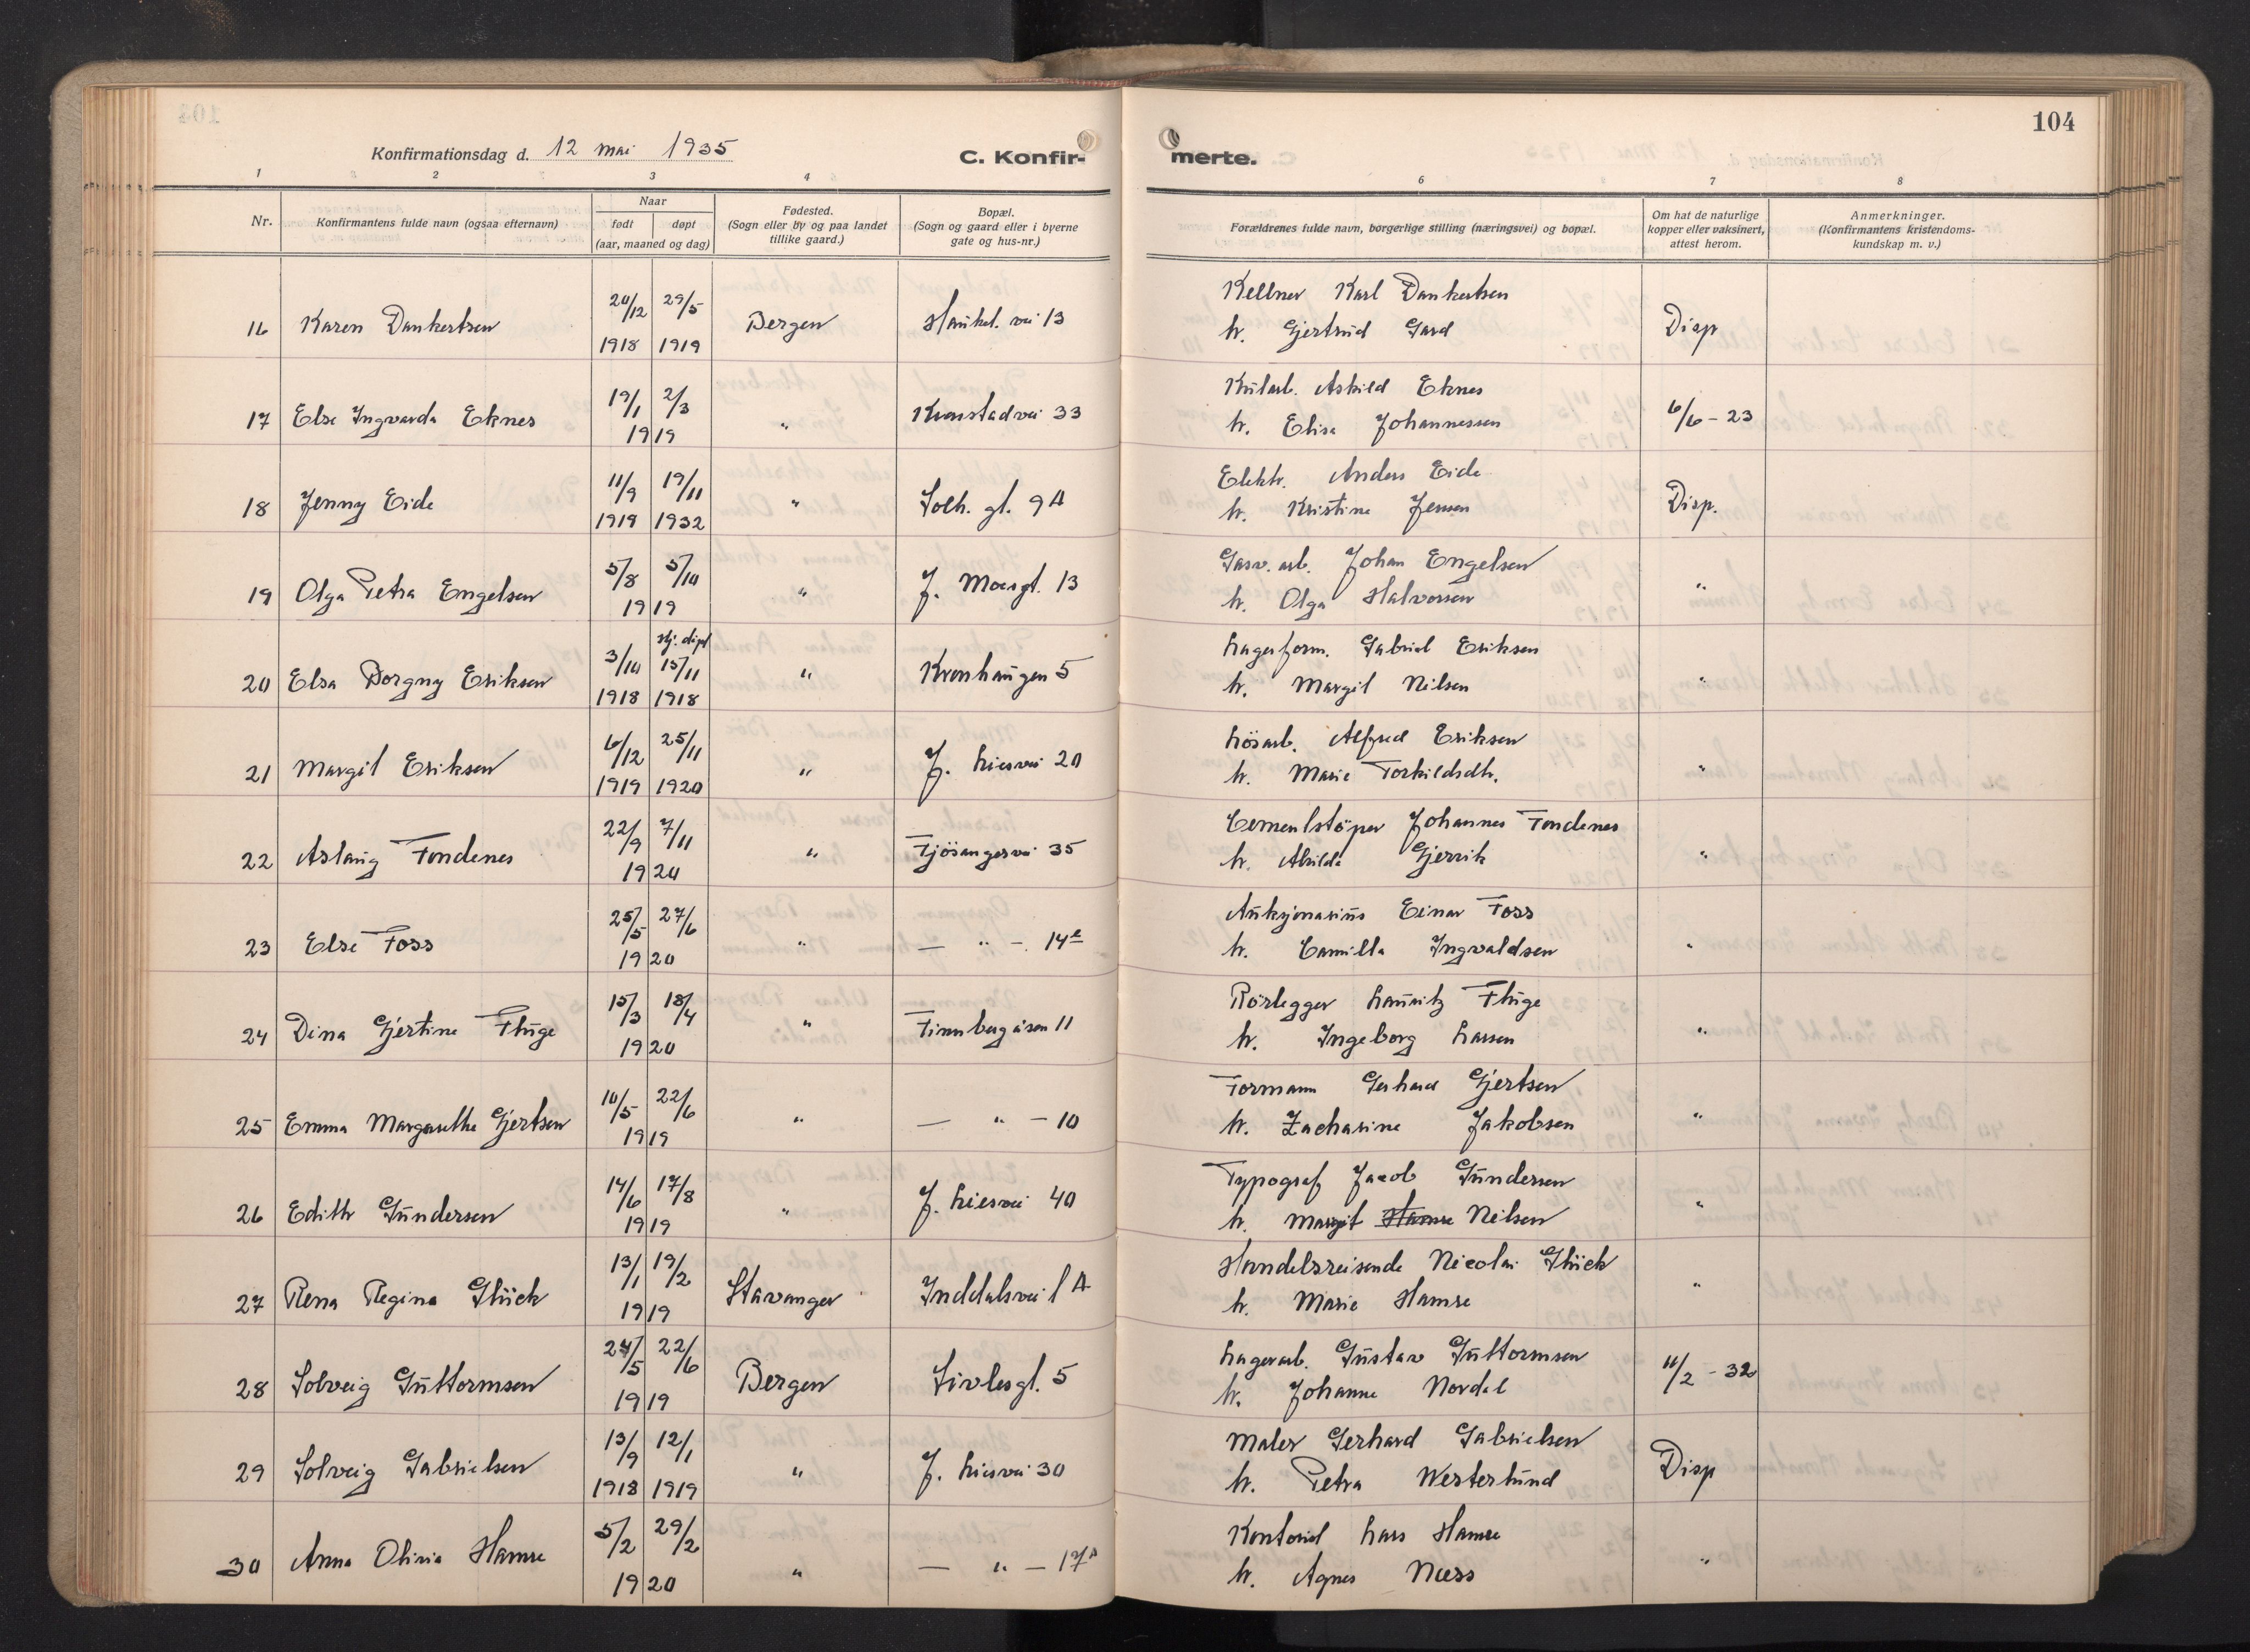 104
Konfirmationsdag d. 12 mai 1935
C. Konfir- merte.
1 2 3 4 6 7 8
Nr.
Konfirmantens fulde navn (ogsaa efternavn)
Naar
født døpt
(aar, maaned og dag)
Fødested.
(Sogn eller by og paa landet
tillike gaard.)
Bopæl.
(Sogn og gaard eller i byerne
gate og hus-nr.)
Forældrenes fulde navn, borgerlige stilling (næringsvei) og bopæl.
Om hat de naturlige
kopper eller vaksinert,
attest herom.
Anmerkninger.
(Konfirmantens kristendoms-
kundskap m. v.)
16 Karen Dankertsen 20/12 1918 29/5 1919 Bergen Haukel. vei 13
Kellner Karl Dankertsen
h. Gjertrud Gard Disp
17 Else Ingvarda Eknes 19/1 2/3 1919 " Kronstadvei 33
Askild Eknes
h. Elisa Johannessen 6/6 - 23
18 Jenny Eide 11/9 1919 19/11 1932 " Solh. gt. 9A
Elektr. Anders Eide
h. Kristine Jensen Disp.
19 Olga Petra Engelsen 5/8 5/10 1919 " J. Moesgt. 13
Gasv. arb. Johan Engelsen
h. Olga Halvorsen "
20 Elsa Borgny Eriksen 3/10 1918 hj. døpt 15/11 1918 " Kronhaugen 5
Lagerform. Gabriel Eriksen
h. Margit Nilsen "
21 Margit Eriksen 6/12 1919 25/11 1920 " J. Liesvei 20
Løsarb. Alfred Eriksen
h. Marie Torkildsdtr. "
22 Aslaug Fondenes 22/9 7/11 1920 " Fjösangervei 35
Cementstöper Johannes Fondenes
h. Gjervik "
23 Else Foss 25/5 27/6 1920 " — " — 14
Auksjonarius Einar Foss
h. Camilla Ingvaldsen "
24 Dina Gjertine Fluge 15/3 18/4 1920 " Finnbergåsen 11
Rörlegger Lauritz Fluge
h. Ingeborg Larsen "
25 Emma Margarethe Gjertsen 10/5 22/6 1919 " — " — 10
Formann Gerhard Gjertsen
h. Zacharine Jakobsen "
26 Edith Gundersen 14/6 17/8 1919 " J. Liesvei 40
Typograf Jacob Gundersen
h. Margit Hamre Nilsen "
27 Rena Regina Glück 13/1 19/2 1919 Stavanger Inddalsvei 1 A
Handelsreisende Nicolai Glück
h. Marie Hamre "
28 Solveig Guttormsen 24/5 22/6 1919 Bergen Sivlesgt. 5
Lagerarb. Gustav Guttormsen
h. Johanne Nordal 11/2 - 32
29 Solveig Gabrielsen 13/9 1918 12/1 1919 " J. Liesvei 30
Maler Gerhard Gabrielsen
h. Petra Westerlund Disp
30 Anna Olivia Hamre 5/2 29/2 1920 " — " — 17A
Kontorist Lars Hamre
h. Agnes Næss "